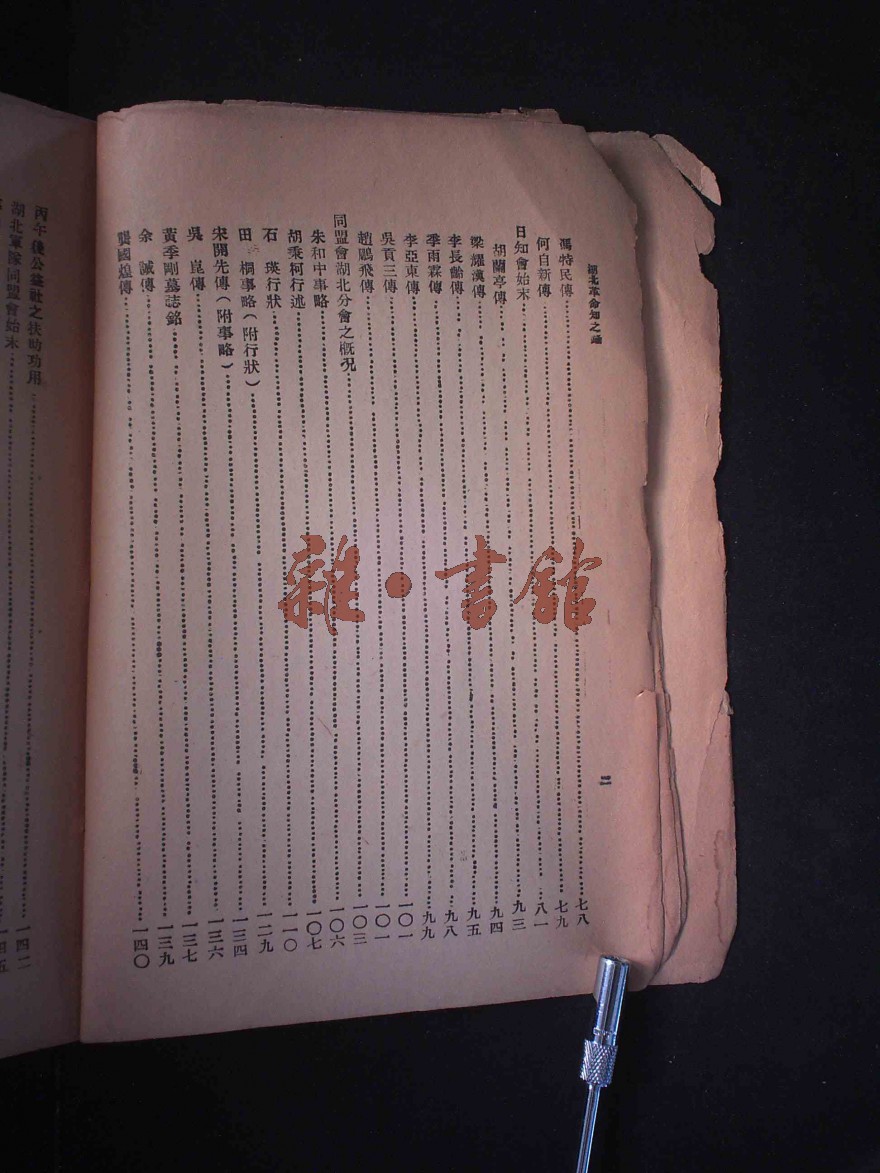 湖北革命知之錄
二
馮特民傳 七八
何自新傳 七九
日知會始末 八一
胡蘭亭傳 九三
梁耀漢傳 九四
李長齡傳 九五
季雨霖傳 九八
李亞東傳 九九
吳貢三傳 一〇一
趙鵬飛傳 一〇一
同盟會湖北分會之概況 一〇三
朱和中事略 一〇六
胡秉柯行述 一〇七
石 瑛行狀 一一〇
田 桐事略(附行狀) 一二九
宋開先傳(附事略) 一三四
吳 崑傳 一三六
黃季剛墓誌銘 一三七
余 誠傳 一三九
龔國煌傳 一四〇
丙午後公益社之扶助功用 一四二
湖北軍隊同盟會始末 一四五
雜·書館